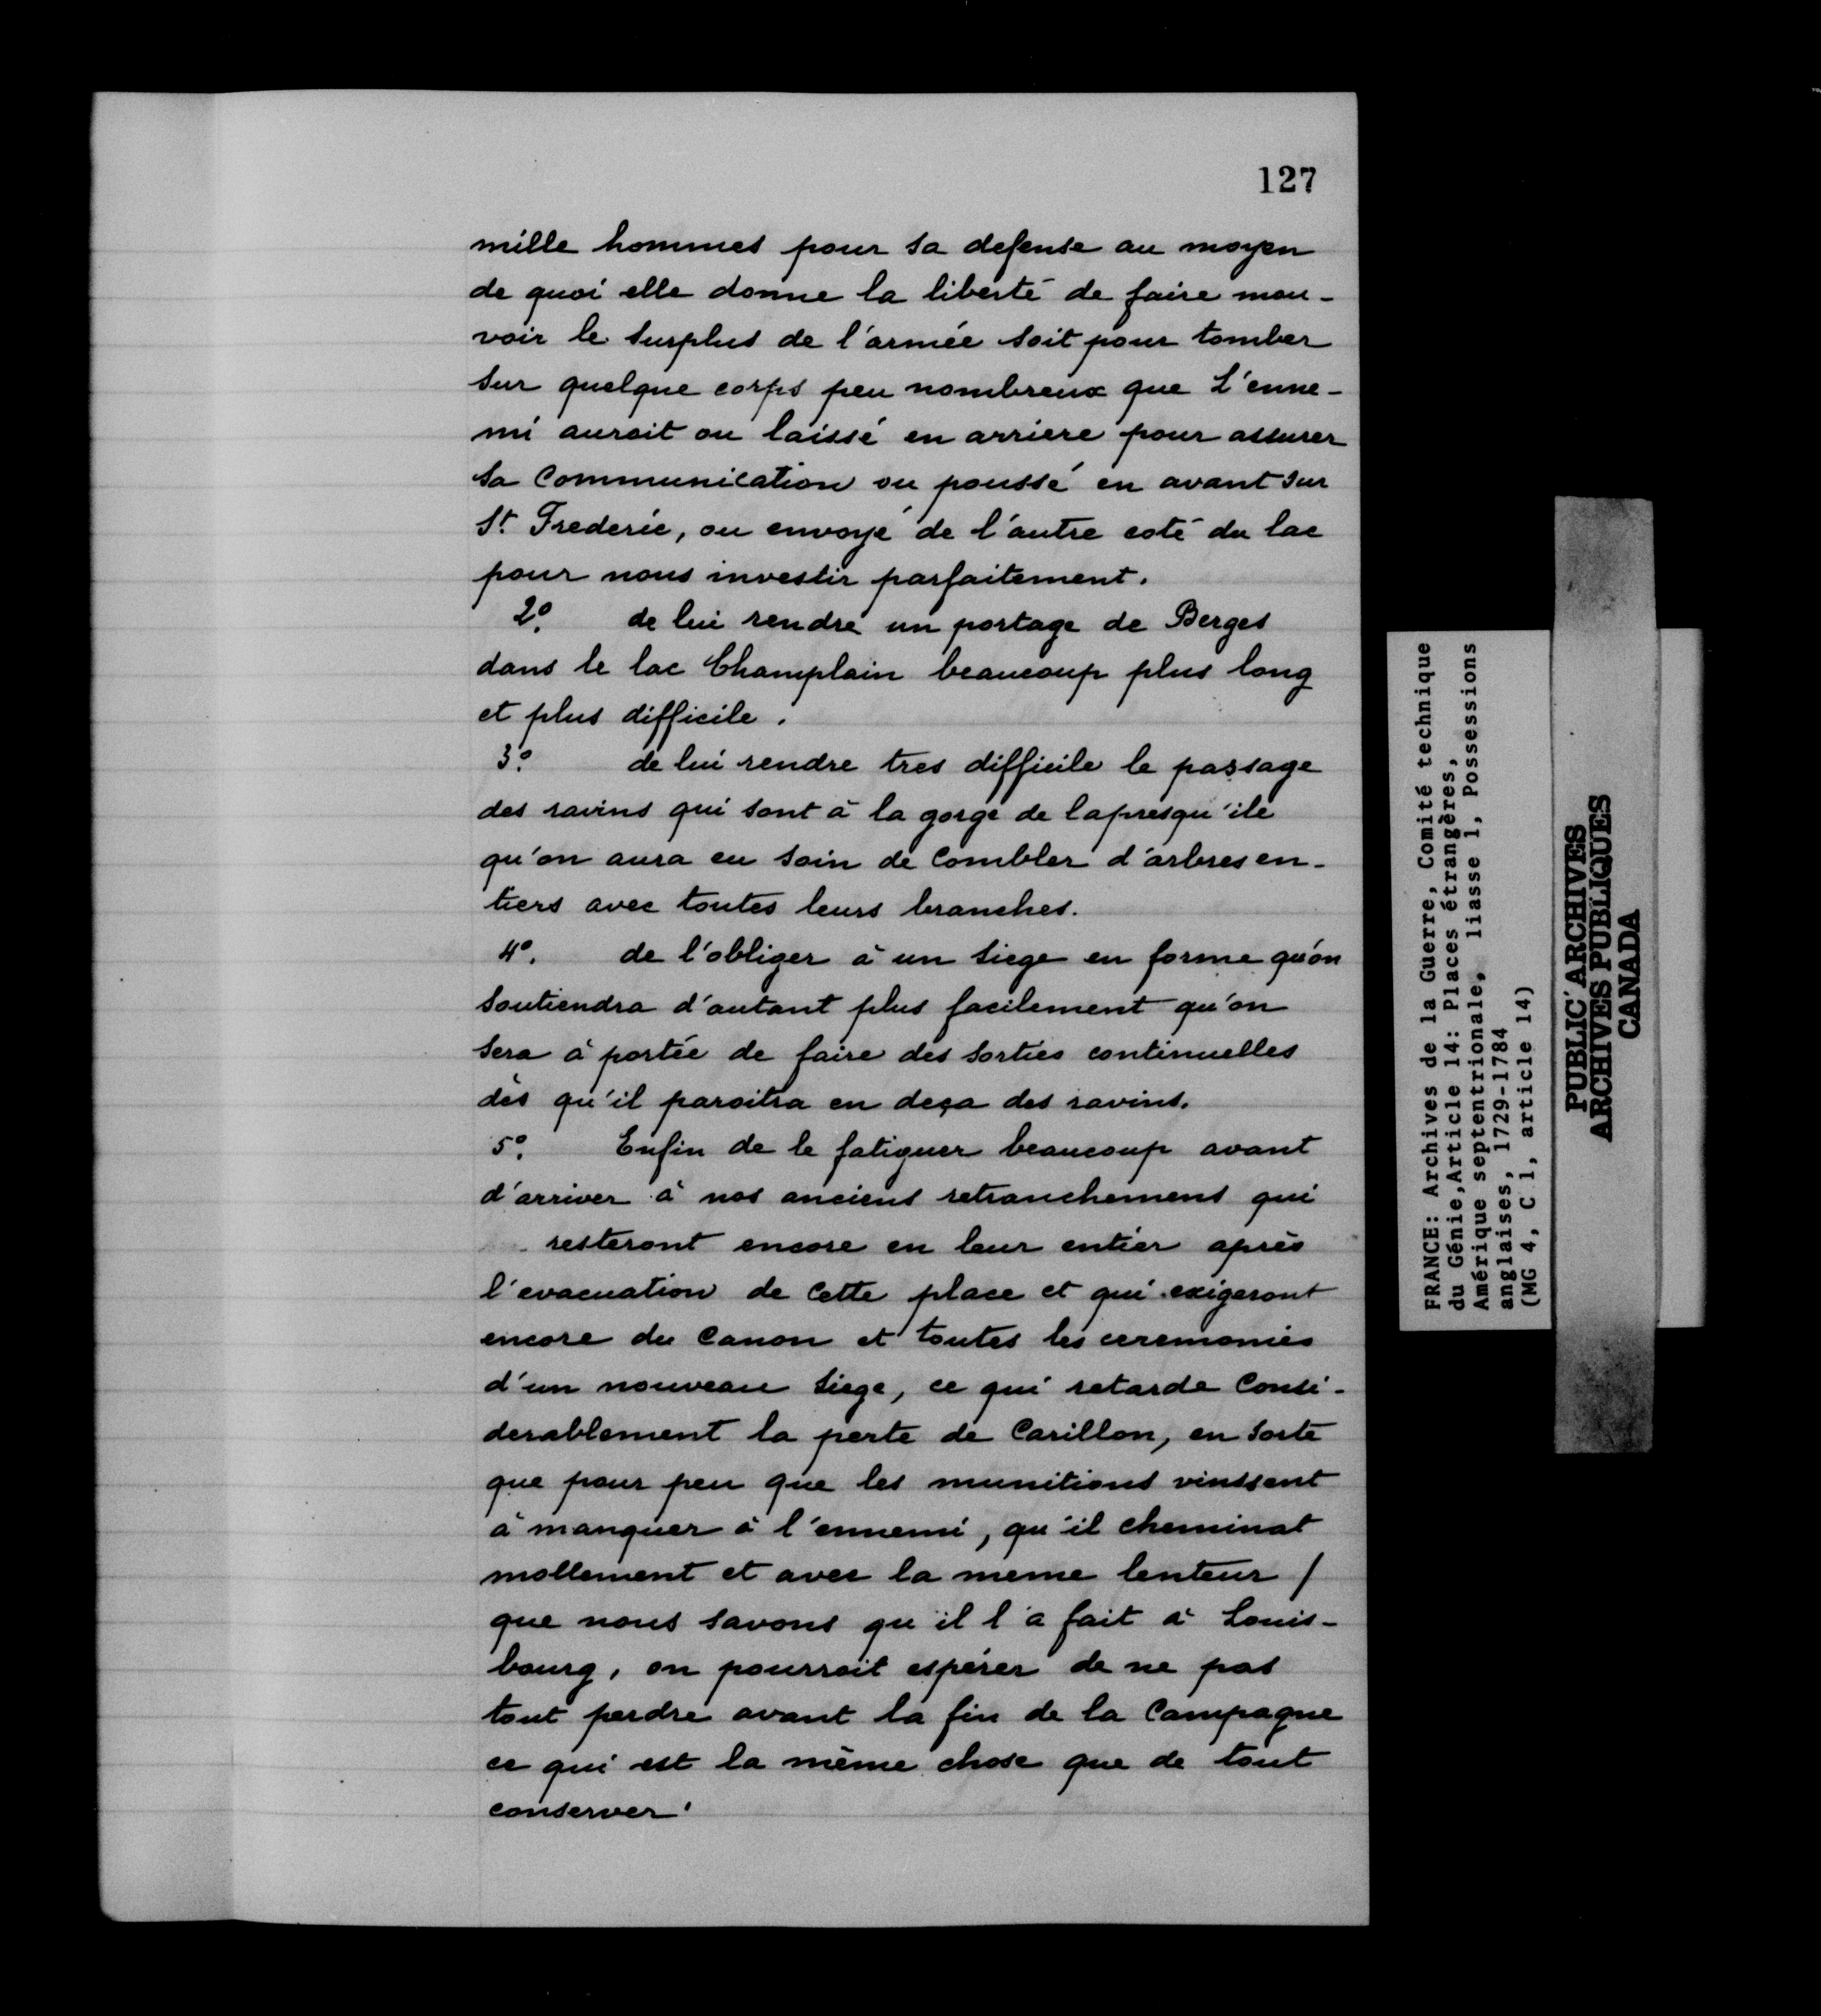 127
mille hommes pour sa defense au moyen
de quoi elle donne la liberté de faire mou-
voir le surplus de l'armée soit pour tomber
sur quelque corps peu nombreux que L'enne-
mi auroit ou laissé en arriere pour assurer
sa Communication ou poussé en avant sur
St. Frederic, ou envoyé de l'autre coté du lac
pour nous investir parfaitement.
2º. de lui rendre un portage de Berges
dans le lac Champlain beaucoup plus long
et plus difficile.
3º. de lui rendre tres difficile le passage
des ravins qui sont à la gorge de lapresqu'ile
qu'on aura eu soin de Combler d'arbres en-
tiers avec toutes leurs branches.
4º. de l'obliger à un siege en forme qu'on
soutiendra d'autant plus facilement qu'on
sera à portée de faire des sorties continuelles
dès qu'il paroitra en deça des ravins.
5º. Enfin de le fatiguer beaucoup avant
d'arriver à nos anciens retranchemens qui
resteront encore en leur entier après
l'evacuation de Cette place et qui exigeront
encore du Canon et toutes les ceremonies
d'un nouveau siege, ce qui retarde Consi-
derablement la perte de Carillon, en sorte
que pour peu que les munitions vinssent
à manquer à l'ennemi, qu'il cheminat
mollement et avec la meme lenteur /
que nous savons qu'il l'a fait à Louis-
bourg, on pourroit espérer de ne pas
tout perdre avant la fin de la Campagne
ce qui est la même chose que de tout
conserver.
FRANCE: Archives de la Guerre, Comité technique
du Génie,Article 14: Places étrangères,
Amérique septentrionale, liasse 1, Possessions
anglaises, 1729-1784
(MG 4, C 1, article 14)
PUBLIC ARCHIVES
ARCHIVES PUBLIQUES
CANADA